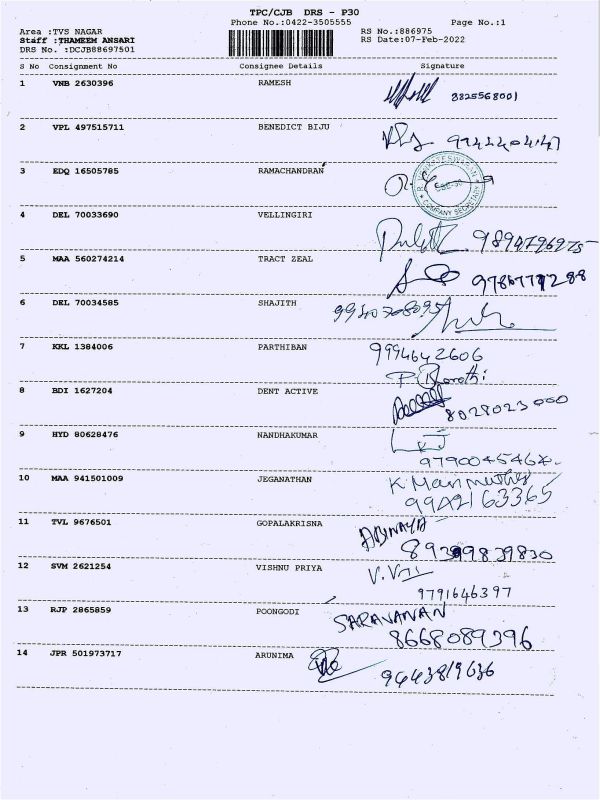 TPC/CJB DRS - P30
Phone No.:0422-3505555 Page No.:1
Area :TVS NAGAR RS No.:886975
Staff :THAMEEM ANSARI RS Date:07-Feb-2022
DRS No. :DCJB88697501
S No Consignment No Consignee Details Signature
1 VNB 2630396 RAMESH
8825568001
2 VPL 497515711 BENEDICT BIJU
3 EDQ 16505785 RAMACHANDRAN
COMPANY SECRETARY
4 DEL 70033690 VELLINGIRI
9894796275
5 MAA 560274214 TRACT ZEAL
6 DEL 70034585 SHAJITH
7 KKL 1384006 PARTHIBAN 9994642606
P Bharathi
8 BDI 1627204 DENT ACTIVE
8028023000
9 HYD 80628476 NANDHAKUMAR
10 MAA 941501009 JEGANATHAN K Marimuthu
9942163365
11 TVL 9676501 GOPALAKRISNA ABINAYA
12 SVM 2621254 VISHNU PRIYA
9791646397
13 RJP 2865859 POONGODI SARAVANAN
8668089396
14 JPR 501973717 ARUNIMA
9443819636